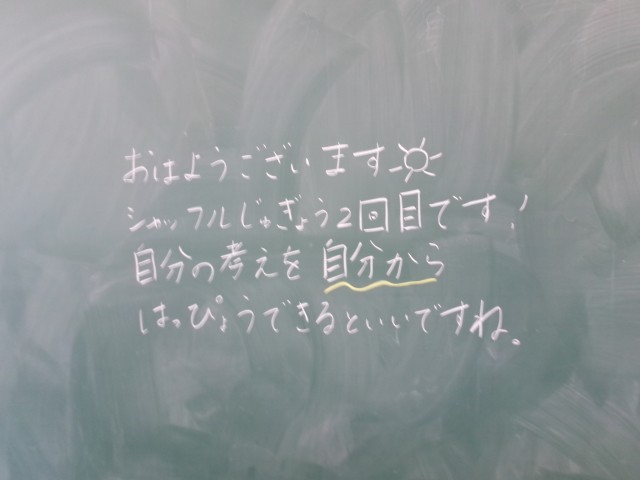 おはようございます☼
シャッフルじゅぎょう2回目です!
自分の考えを自分から
はっぴょうできるといいですね。